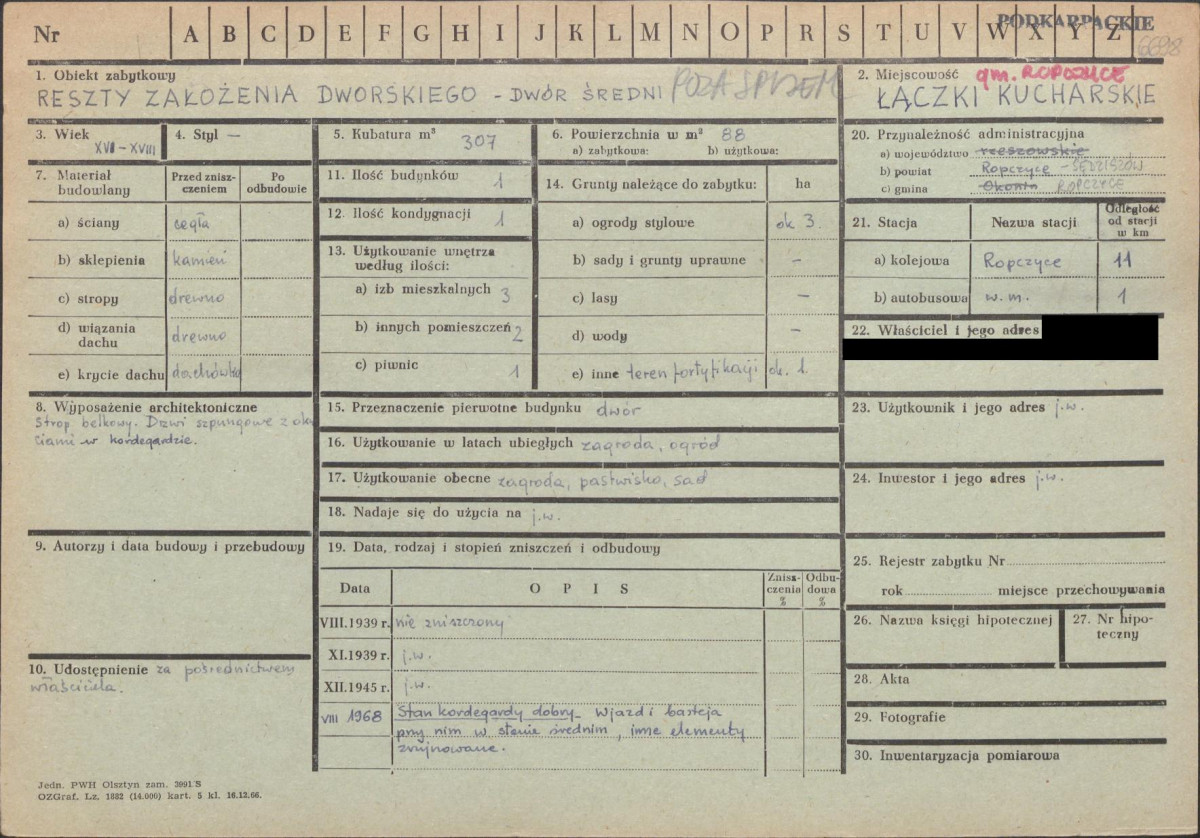 Nr A B C D E F G H I J K L M N O P R S T U V W X Y Z
PODKARPACKIE
6698
1. Obiekt zabytkowy
RESZTY ZAŁOŻENIA DWORSKIEGO - DWÓR ŚREDNI
2. Miejscowość gm. ROPCZYCE
ŁĄCZKI KUCHARSKIE
3. Wiek
XVI - XVIII
4. Styl —
5. Kubatura m³
307
6. Powierzchnia w m² 88
a) zabytkowa: b) użytkowa:
7. Materiał budowlany
Przed znisz-
czeniem
Po
odbudowie
a) ściany cegła
b) sklepienia kamień
c) stropy drewno
d) wiązania
dachu drewno
e) krycie dachu dachówka
8. Wyposażenie architektoniczne
Strop belkowy. Drzwi szpungowe z oku
ciami w kordegardzie.
9. Autorzy i data budowy i przebudowy
10. Udostępnienie za pośrednictwem
właściciela.
11. Ilość budynków 1
12. Ilość kondygnacji 1
13. Użytkowanie wnętrza
według ilości:
a) izb mieszkalnych 3
b) innych pomieszczeń 2
c) piwnic 1
14. Grunty należące do zabytku: ha
a) ogrody stylowe ok 3.
b) sady i grunty uprawne –
c) lasy –
d) wody –
e) inne teren fortyfikacji ok. 1.
15. Przeznaczenie pierwotne budynku dwór
16. Użytkowanie w latach ubiegłych zagroda, ogród
17. Użytkowanie obecne zagroda, pastwisko, sad
18. Nadaje się do użycia na j.w.
19. Data, rodzaj i stopień zniszczeń i odbudowy
Data O P I S
Znisz-
czenia
%
Odbu-
dowa
%
VIII.1939 r. nie zniszczony
XI.1939 r. j.w.
XII.1945 r. j.w.
VIII 1968 Stan kordegardy dobry. Wjazd i basteja
przy nim w stanie średnim, inne elementy
zrujnowane.
20. Przynależność administracyjna
a) województwo rzeszowskie
b) powiat Ropczyce - SĘDZISZÓW
c) gmina Okonin ROPCZYCE
21. Stacja Nazwa stacji
Odległość
od stacji
w km
a) kolejowa Ropczyce 11
b) autobusowa w. m. 1
22. Właściciel i jego adres
23. Użytkownik i jego adres j.w.
24. Inwestor i jego adres j.w.
25. Rejestr zabytku Nr
rok miejsce przechowywania
26. Nazwa księgi hipotecznej
27. Nr hipo-
teczny
28. Akta
29. Fotografie
30. Inwentaryzacja pomiarowa
Jedn. PWH Olsztyn zam. 3991 S
OZGraf. Lz. 1882 (14.000) kart. 5 kl. 16.12.66.